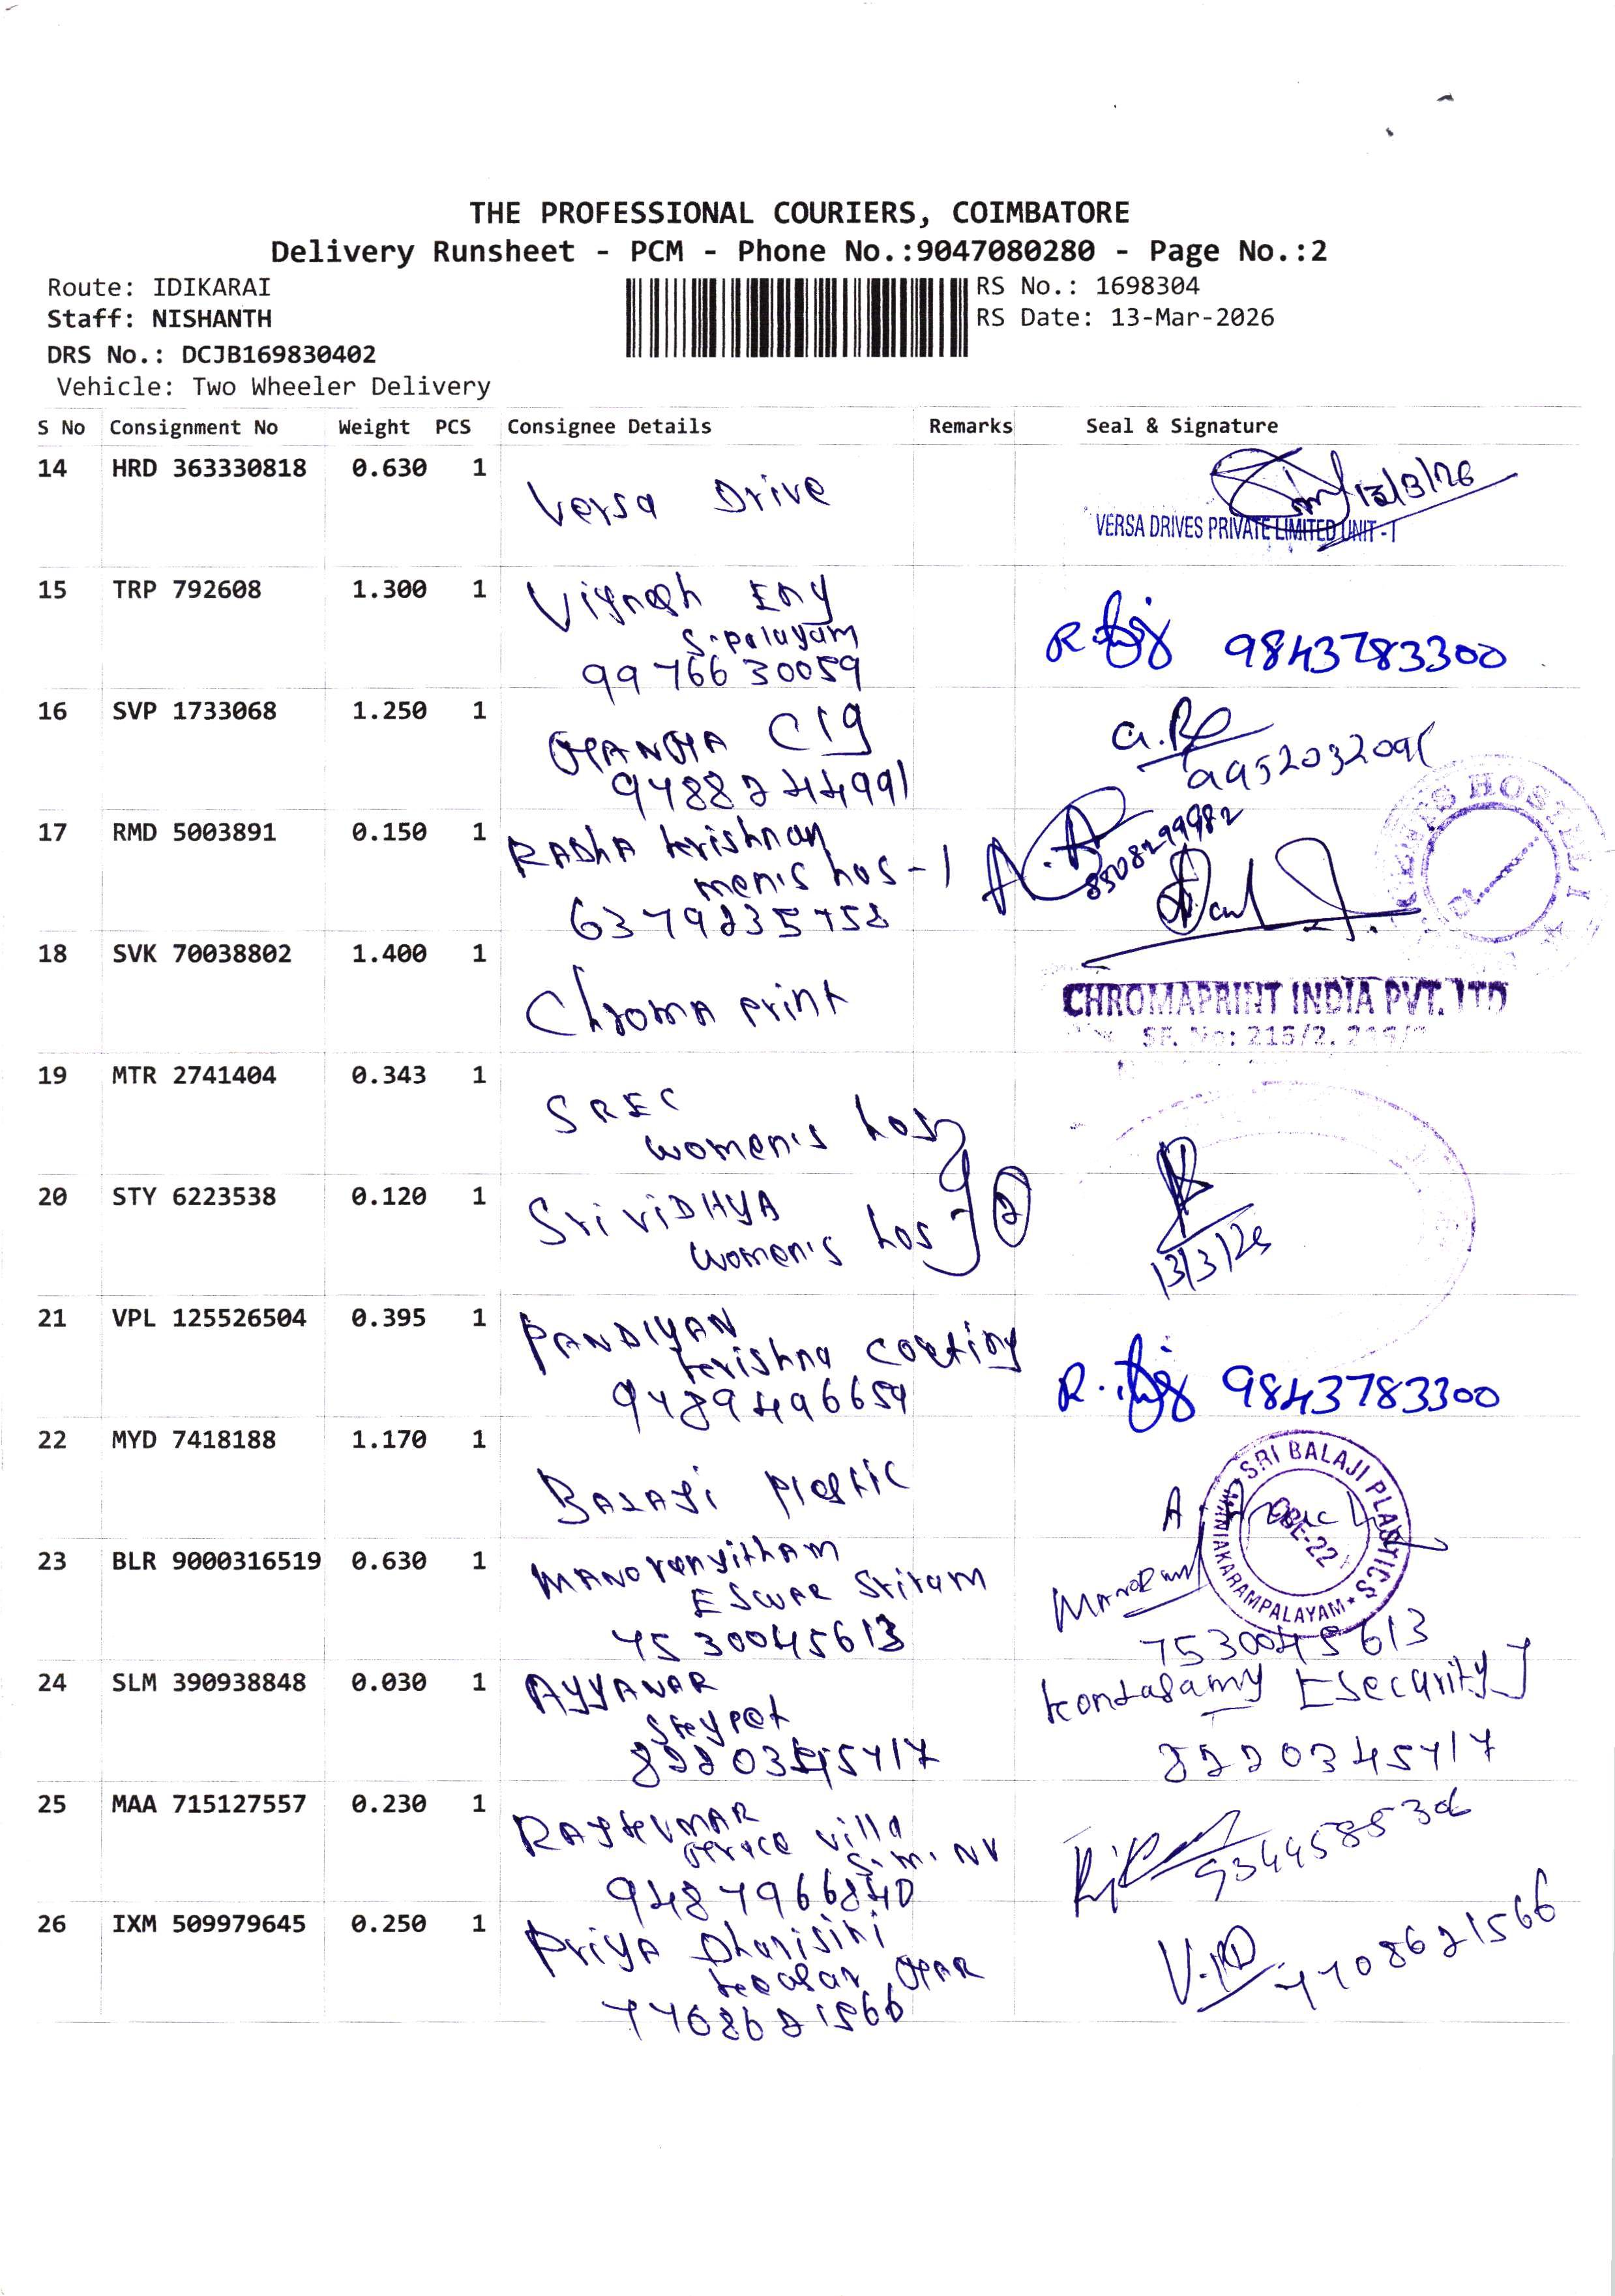 THE PROFESSIONAL COURIERS, COIMBATORE
Delivery Runsheet - PCM - Phone No.:9047080280 - Page No.:2
Route: IDIKARAI
RS No.: 1698304
Staff: NISHANTH
RS Date: 13-Mar-2026
DRS No.: DCJB169830402
Vehicle: Two Wheeler Delivery
S No Consignment No Weight PCS Consignee Details Remarks Seal & Signature
14 HRD 363330818 0.630 1 Versa Drive
13/3/26
VERSA DRIVES PRIVATE LIMITED UNIT -1
15 TRP 792608 1.300 1 Vignesh Eng
S.palayam
9976630059
9843783300
16 SVP 1733068 1.250 1
9488244991
9952032091
17 RMD 5003891 0.150 1 RADhA krishnan
men's hos-1
6379235758
8508299982
MEN'S HOSTEL
18 SVK 70038802 1.400 1 Chroma print
CHROMAPRINT INDIA PVT. LTD
SF. No: 215/2.
19 MTR 2741404 0.343 1 SREC
women's hos
20 STY 6223538 0.120 1 Sri viDHYA
women's hos
2
13/3/26
21 VPL 125526504 0.395 1 PANDIYAN
krishna coating
9489496659
9843783300
22 MYD 7418188 1.170 1 BALAji plastic
SRI BALAJI PLASTICS
CBE-22
MANIAKARAMPALAYAM
23 BLR 9000316519 0.630 1 MANOranjitham
ESWAR Sriram
7530045613
7530045613
24 SLM 390938848 0.030 1 AYYANAR
8220345717
kondasamy [Security]
8220345717
25 MAA 715127557 0.230 1 RAJkUMAR
villa
9487966840
9344585306
26 IXM 509979645 0.250 1 Priya Dharisini
7708621566
7708621566